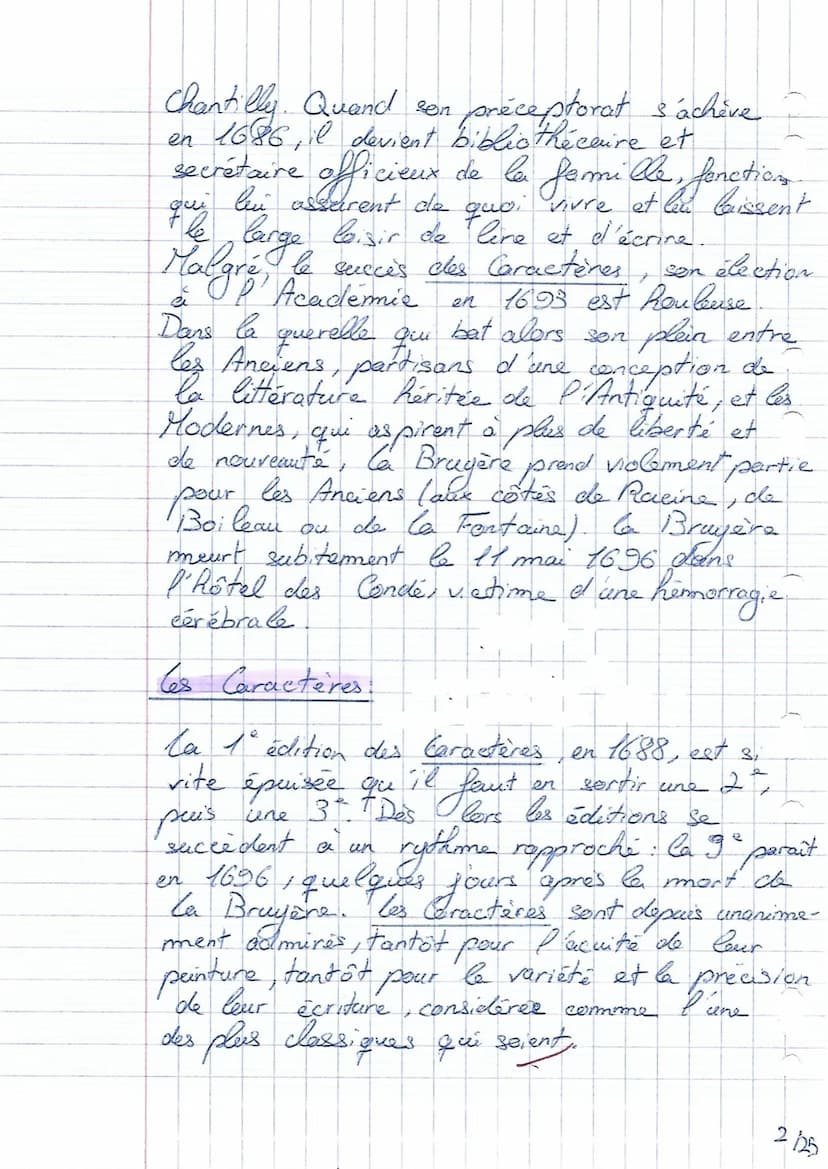 Chantilly. Quand son préceptorat s'achève
en 1686, il devient bibliothécaire et
secrétaire officieux de la famille, fonctions
qui lui assurent de quoi vivre et lui laissent
le large loisir de lire et d'écrire.
Malgré le succès des Caractères, son élection
à l'Académie en 1693 est houleuse.
Dans la querelle qui bat alors son plein entre
les Anciens, partisans d'une conception de
la littérature héritée de l'Antiquité, et les
Modernes, qui aspirent à plus de liberté et
de nouveauté, La Bruyère prend violement partie
pour les Anciens (aux côtés de Racine, de
Boileau ou de La Fontaine). La Bruyère
meurt subitement le 11 mai 1696 dans
l'Hôtel des Condé, victime d'une hémorragie
cérébrale.
Les Caractères:
La 1e édition des Caractères, en 1688, est si
vite épuisée qu'il faut en sortir une 2e,
puis une 3e. Dès lors les éditions se
succèdent à un rythme rapproché : la 9e paraît
en 1696, quelques jours après la mort de
La Bruyère. Les Caractères sont depuis unanime-
ment admirés, tantôt pour l'acuité de leur
peinture, tantôt pour la variété et la précision
de leur écriture, considérée comme l'une
des plus classiques qui soient.
2/25